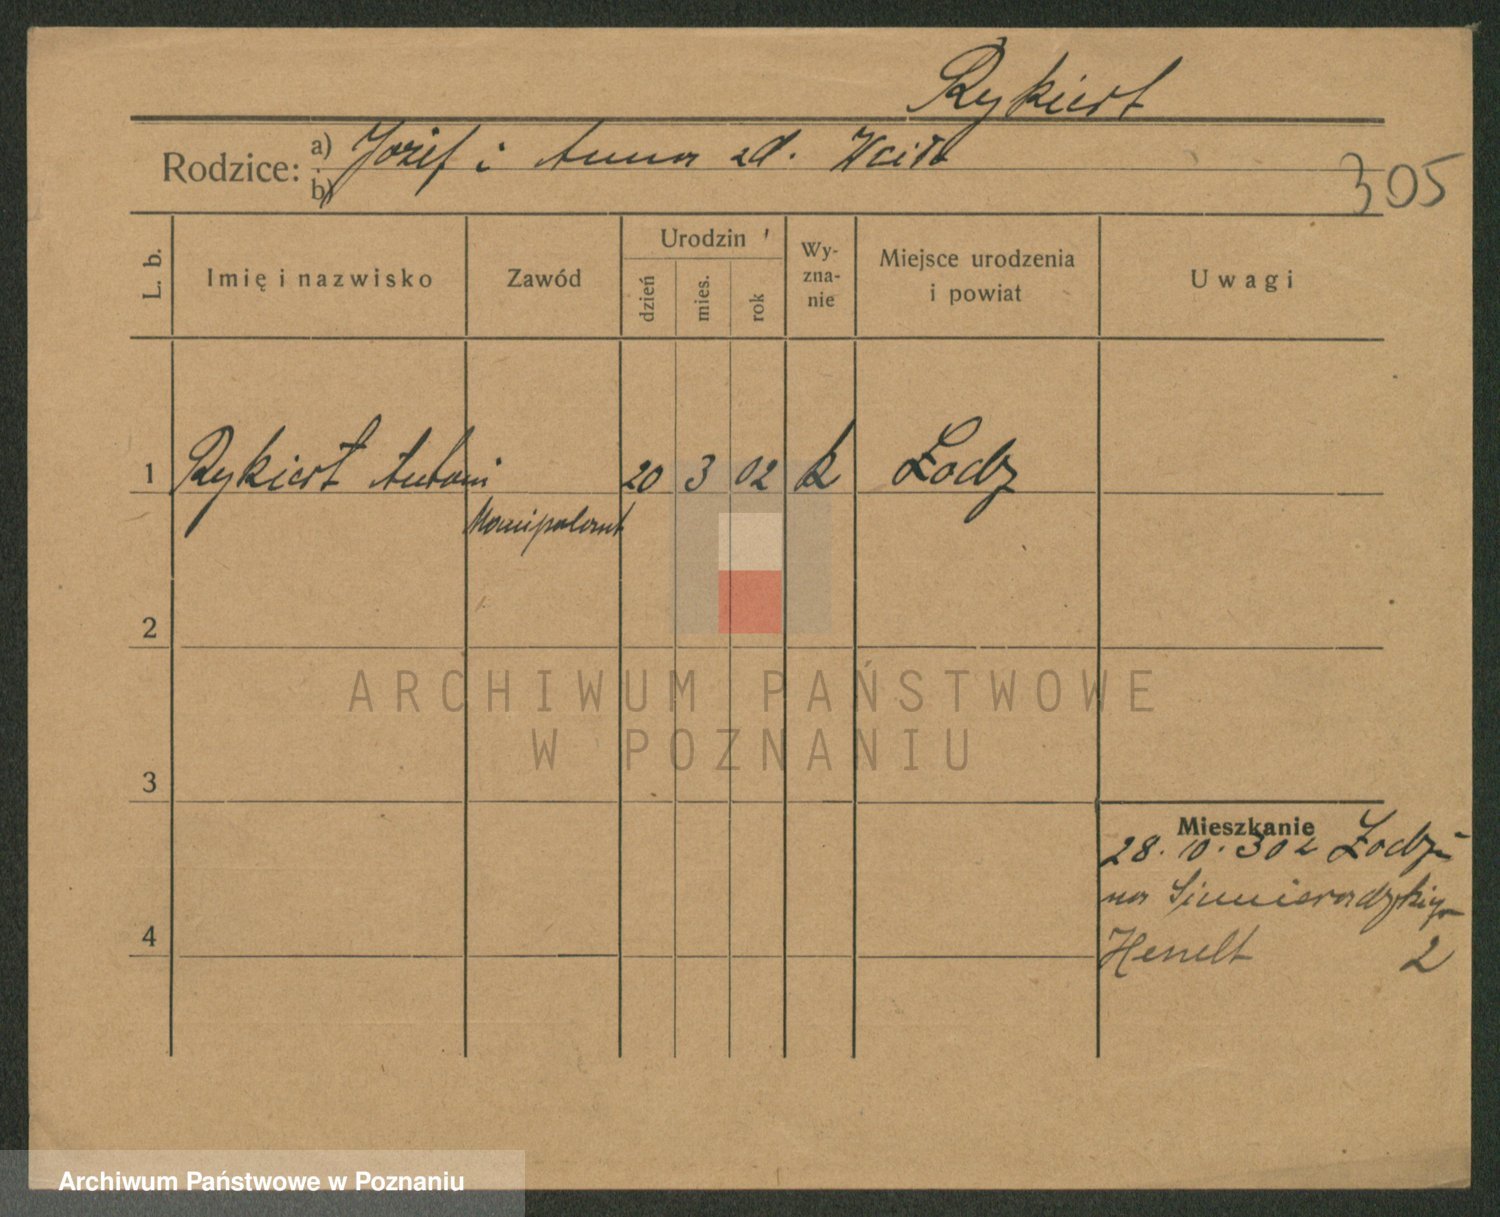 Rykiert
Rodzice: a) Józef i Anna zd.
b)
305
L. b.
Imię i nazwisko
Zawód
Urodzin
dzień
mies.
rok
Wy-
zna-
nie
Miejsce urodzenia
i powiat
Uwagi
1 Rykiert Antoni 20 3 02 k Łodz
Manipulant
2
ARCHIWUM PAŃSTWOWE
W POZNANIU
3
Mieszkanie
28. 10. 30 z Łodzi
na
4
Henelt 2
Archiwum Państwowe w Poznaniu